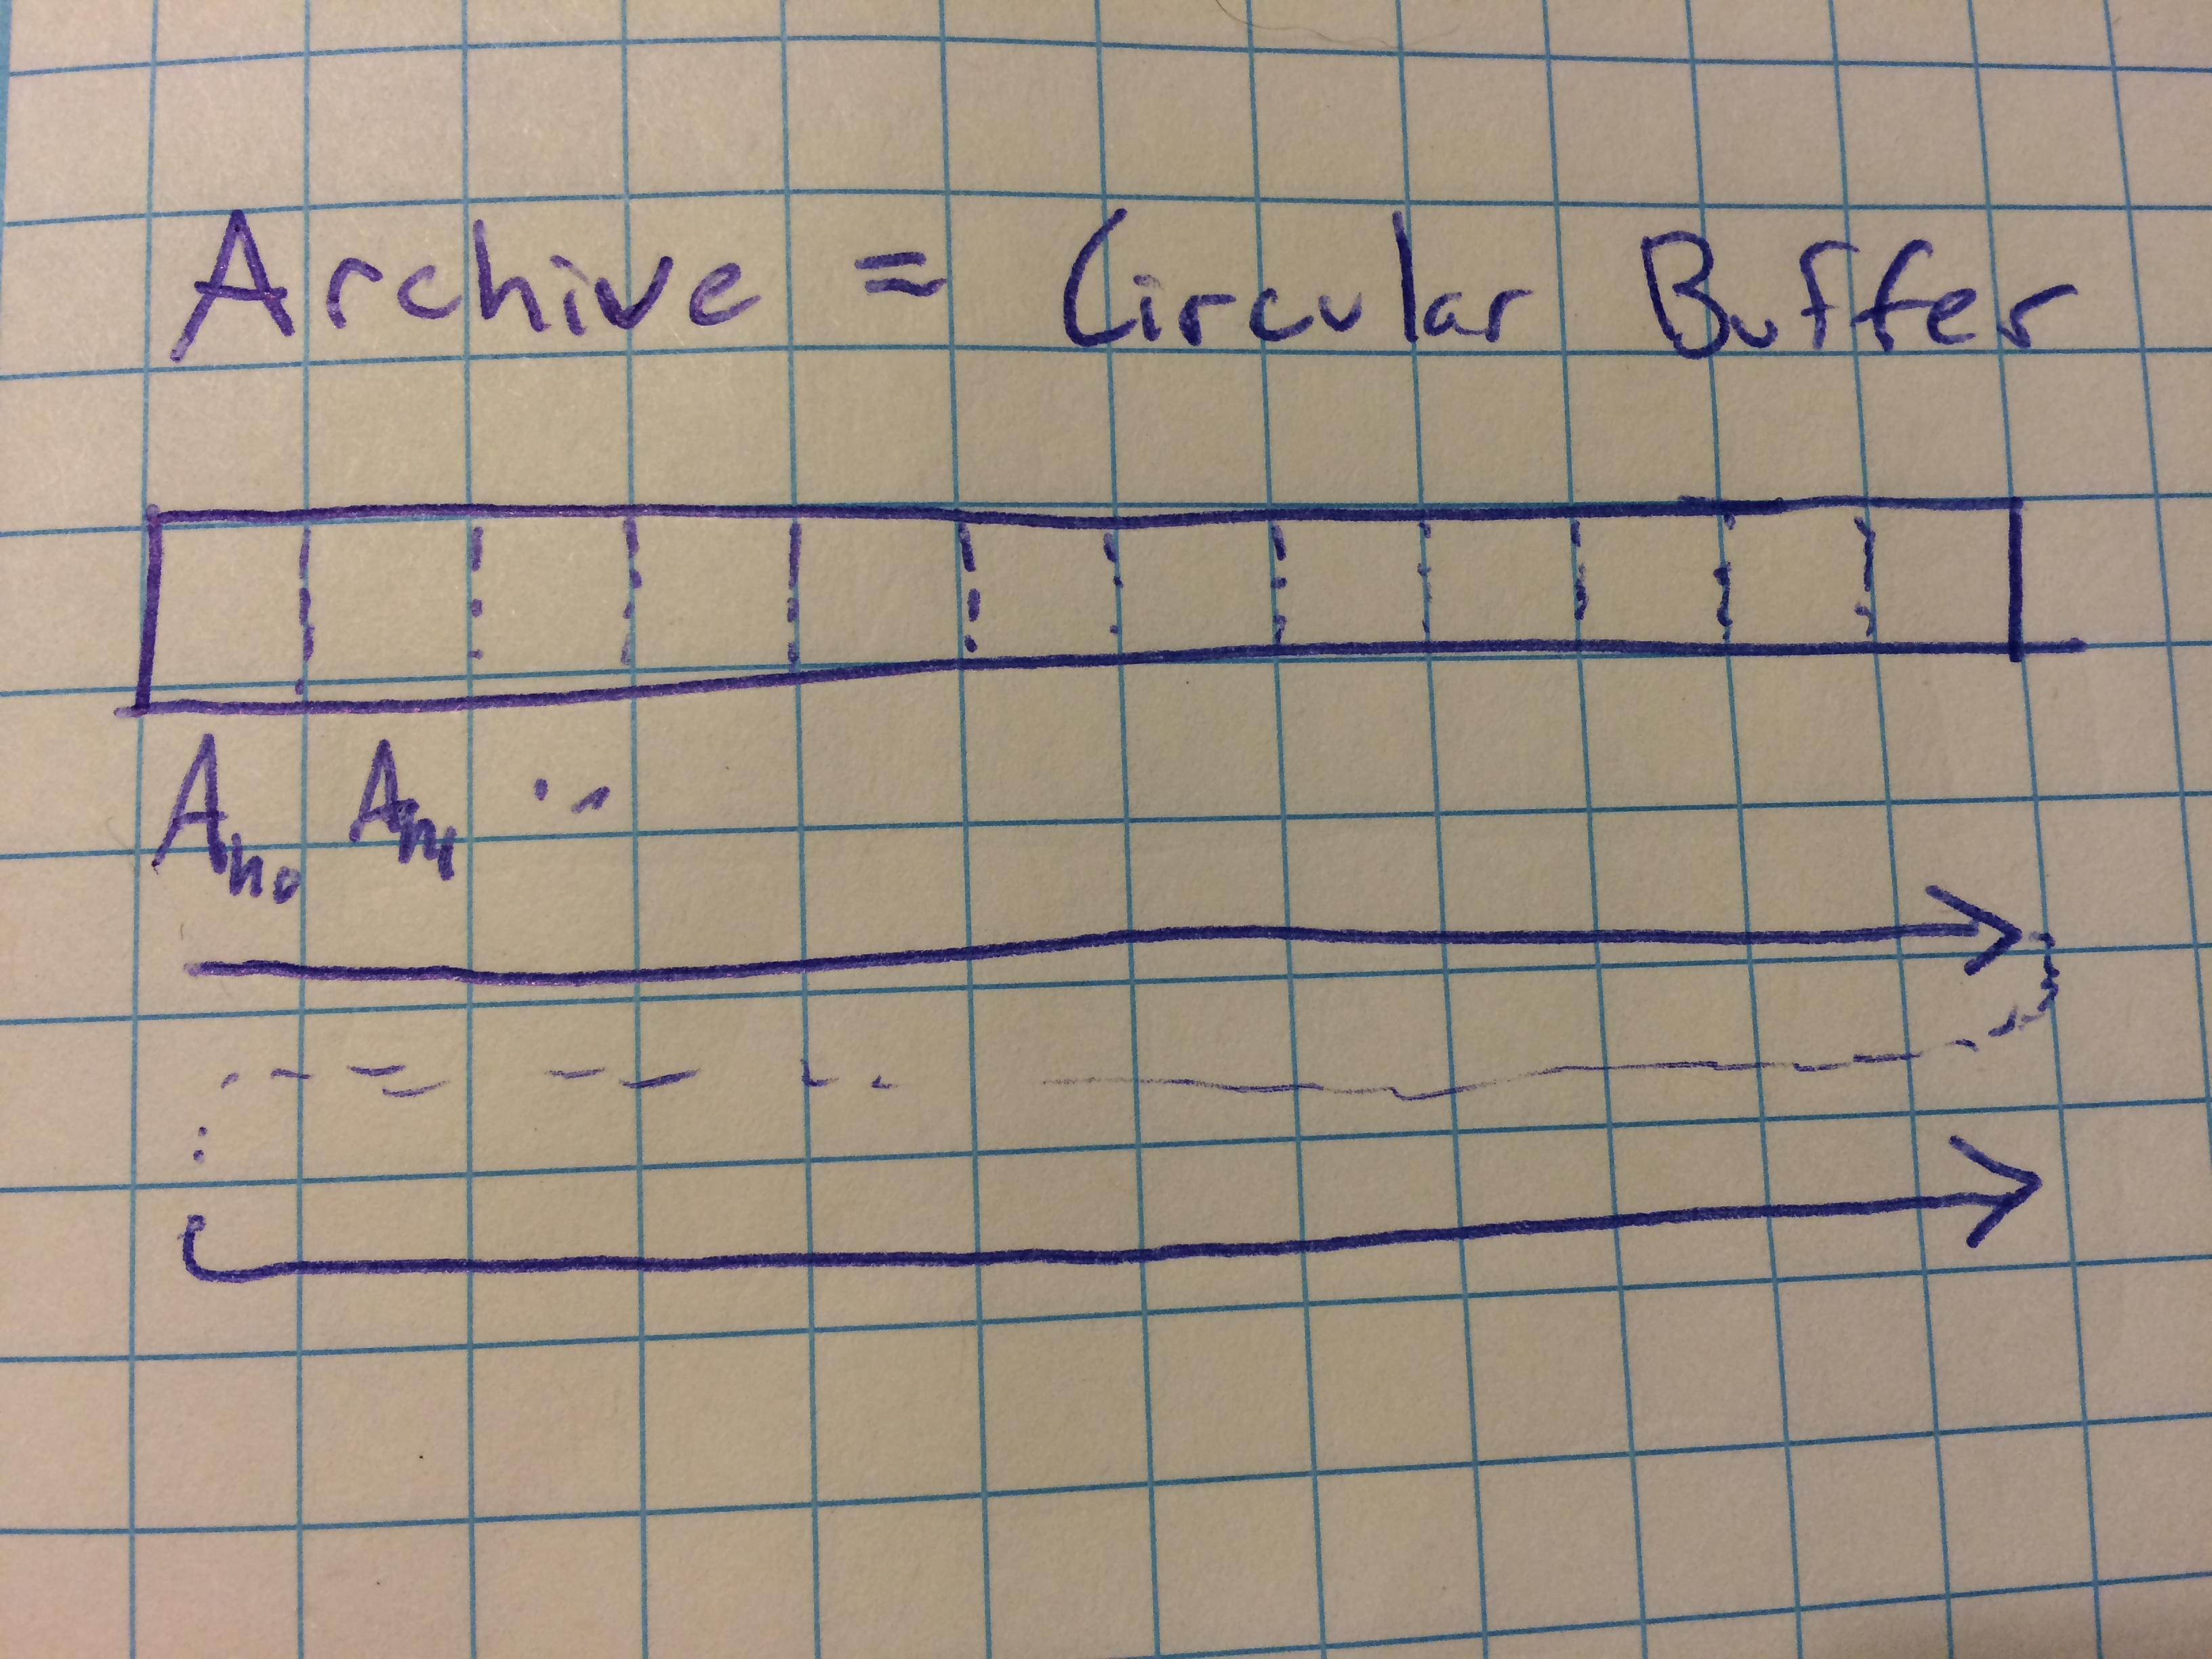 Archive = Circular Buffer
Aₙ₀ Aₙ₁ ..